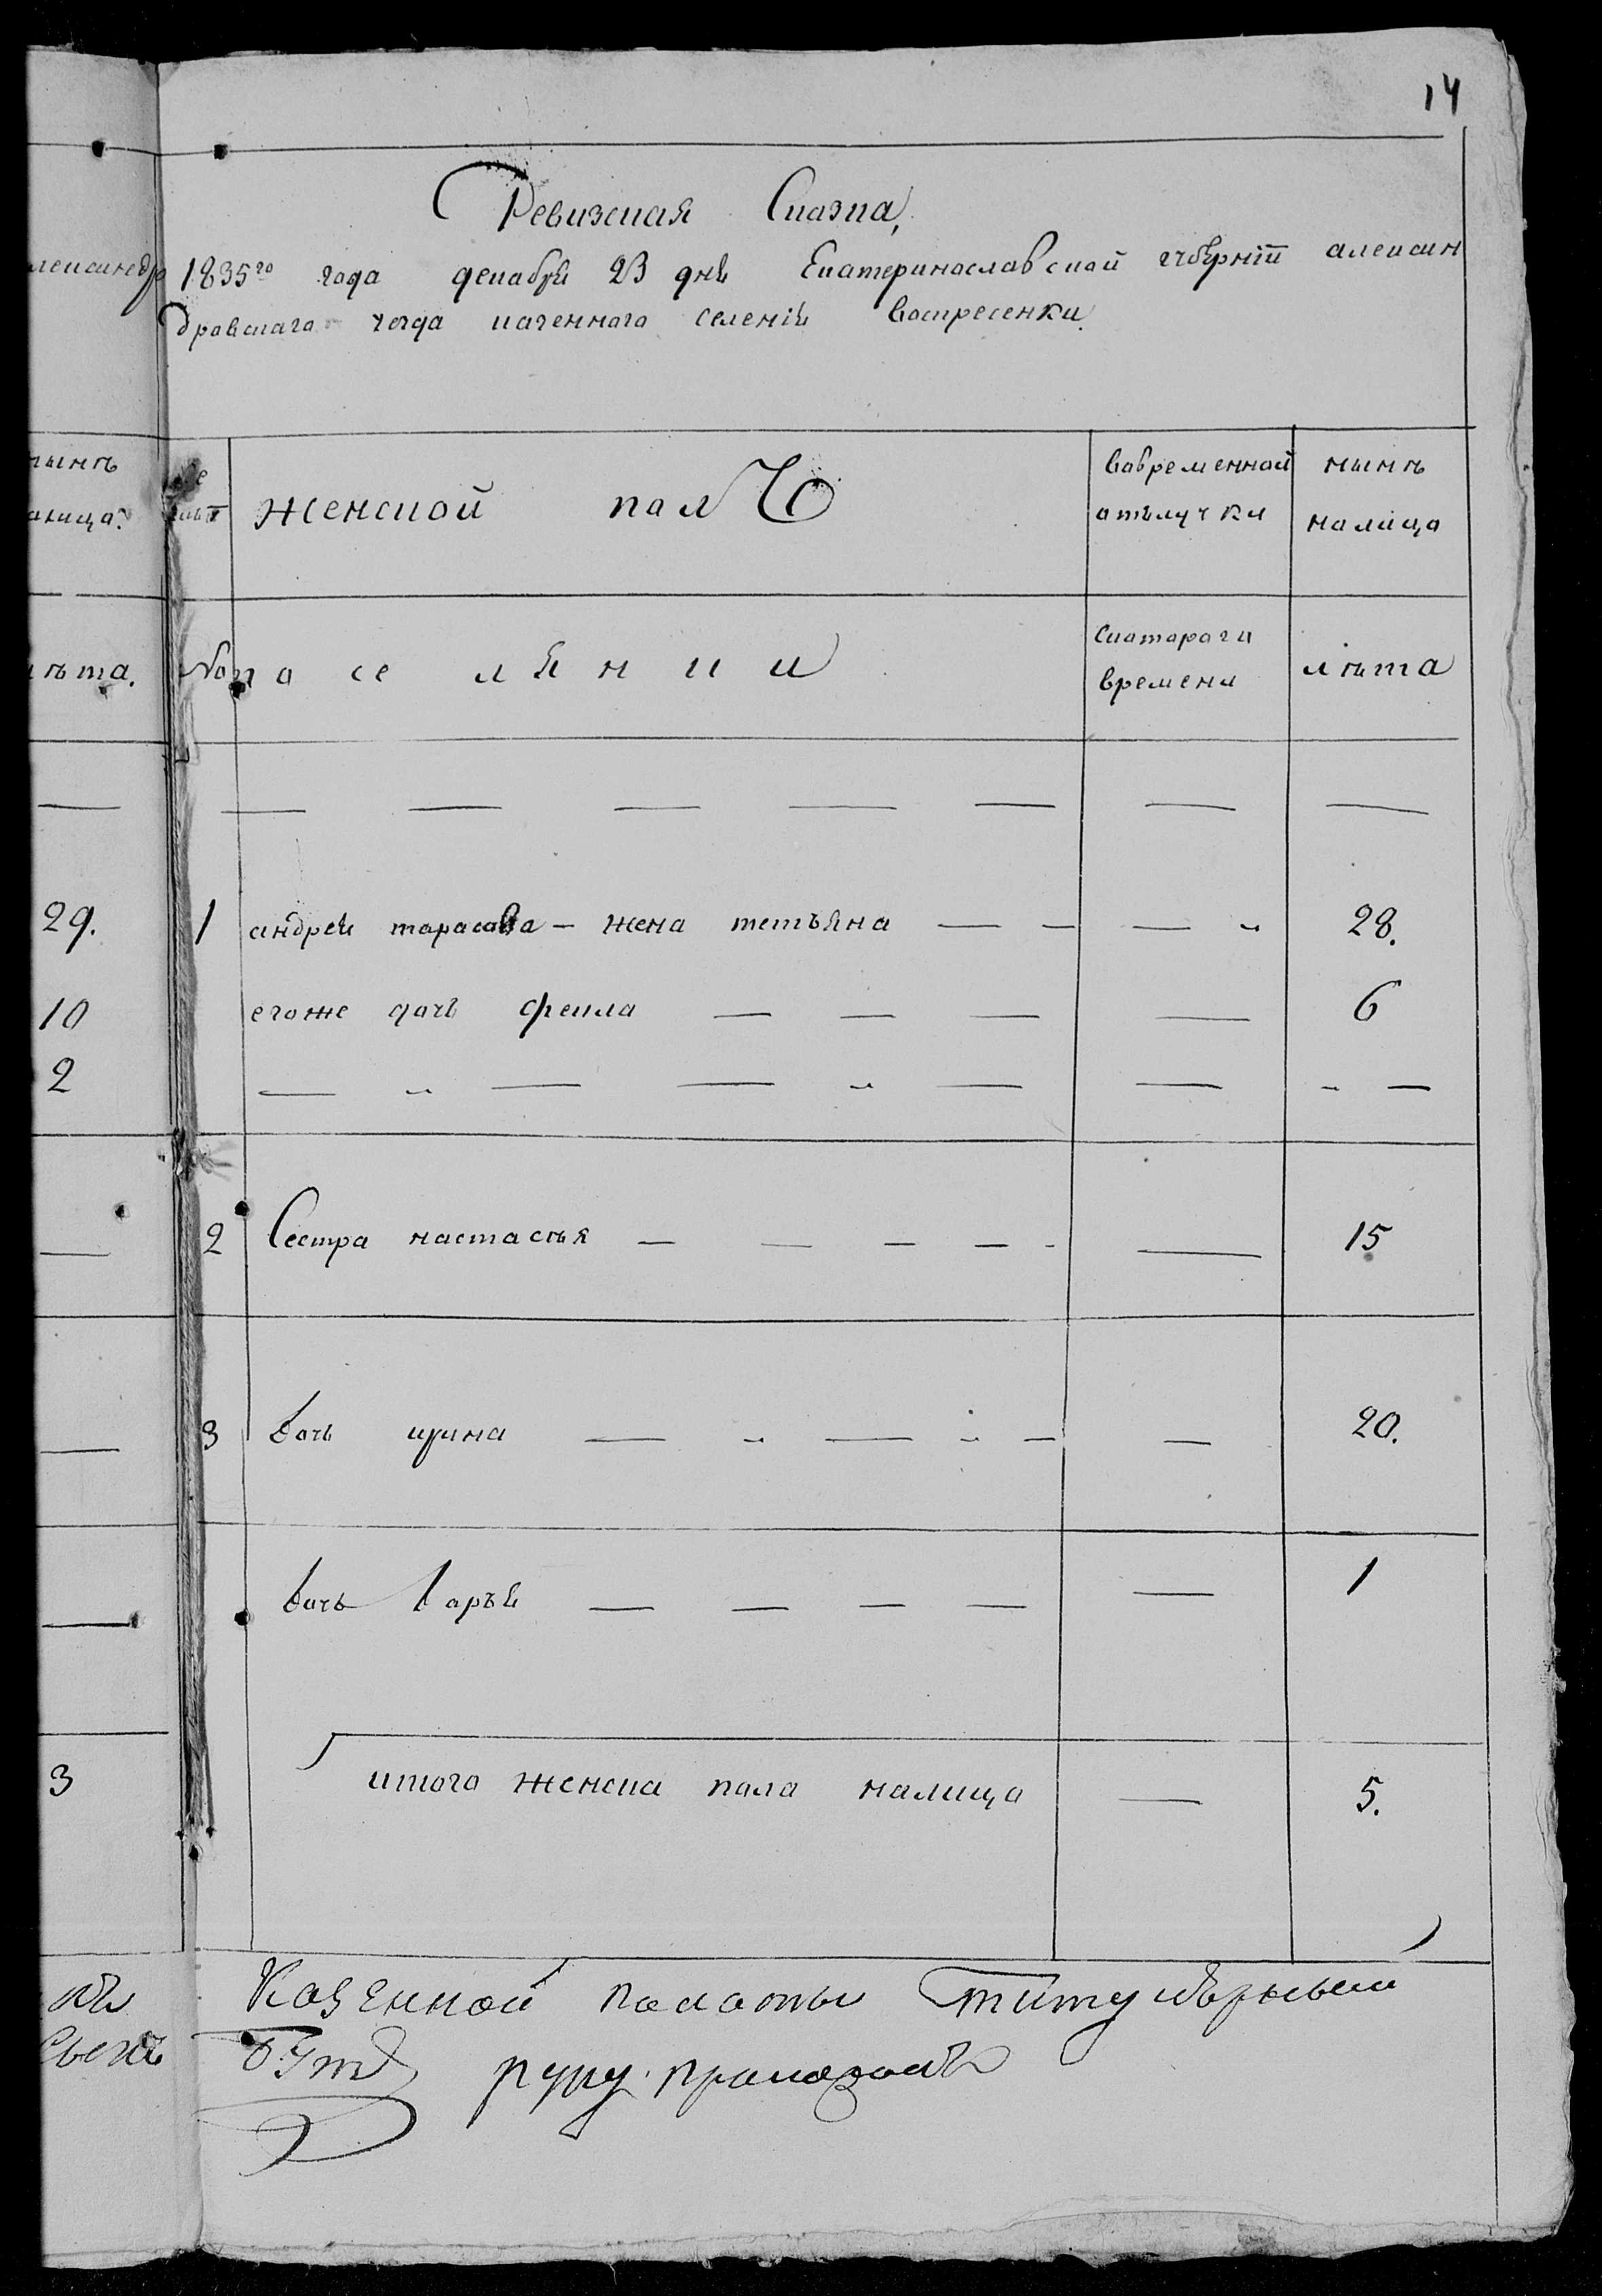 14
Ревизская Сказка,
1835го года декабря 23 дня Екатеринославской губернiи алексан
дровскаго уезда казенного селенiя Воскресенки
лександр
нынѣ
женской пол
вовременной
отълучки
нынѣ
налицо
ѣта.
No
на се ля н и и
Скоторого
времени
лѣта
29.
1 андрея тарасова — жена тетьяна — — — „ 28.
10
егоже дочь фекла — — — — 6
2
— „ — — „ — — - —
2 Сестра настасья — — — — - — 15
3 дочь ирина — „ — „ — — 20.
дочь дарья — — — — — 1
3
итого женска пола налицо — 5.
Казенной палаты Титулярный